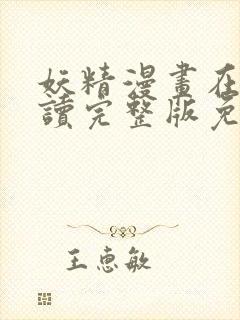 妖精漫畫在
讀完整版免
王惠敏